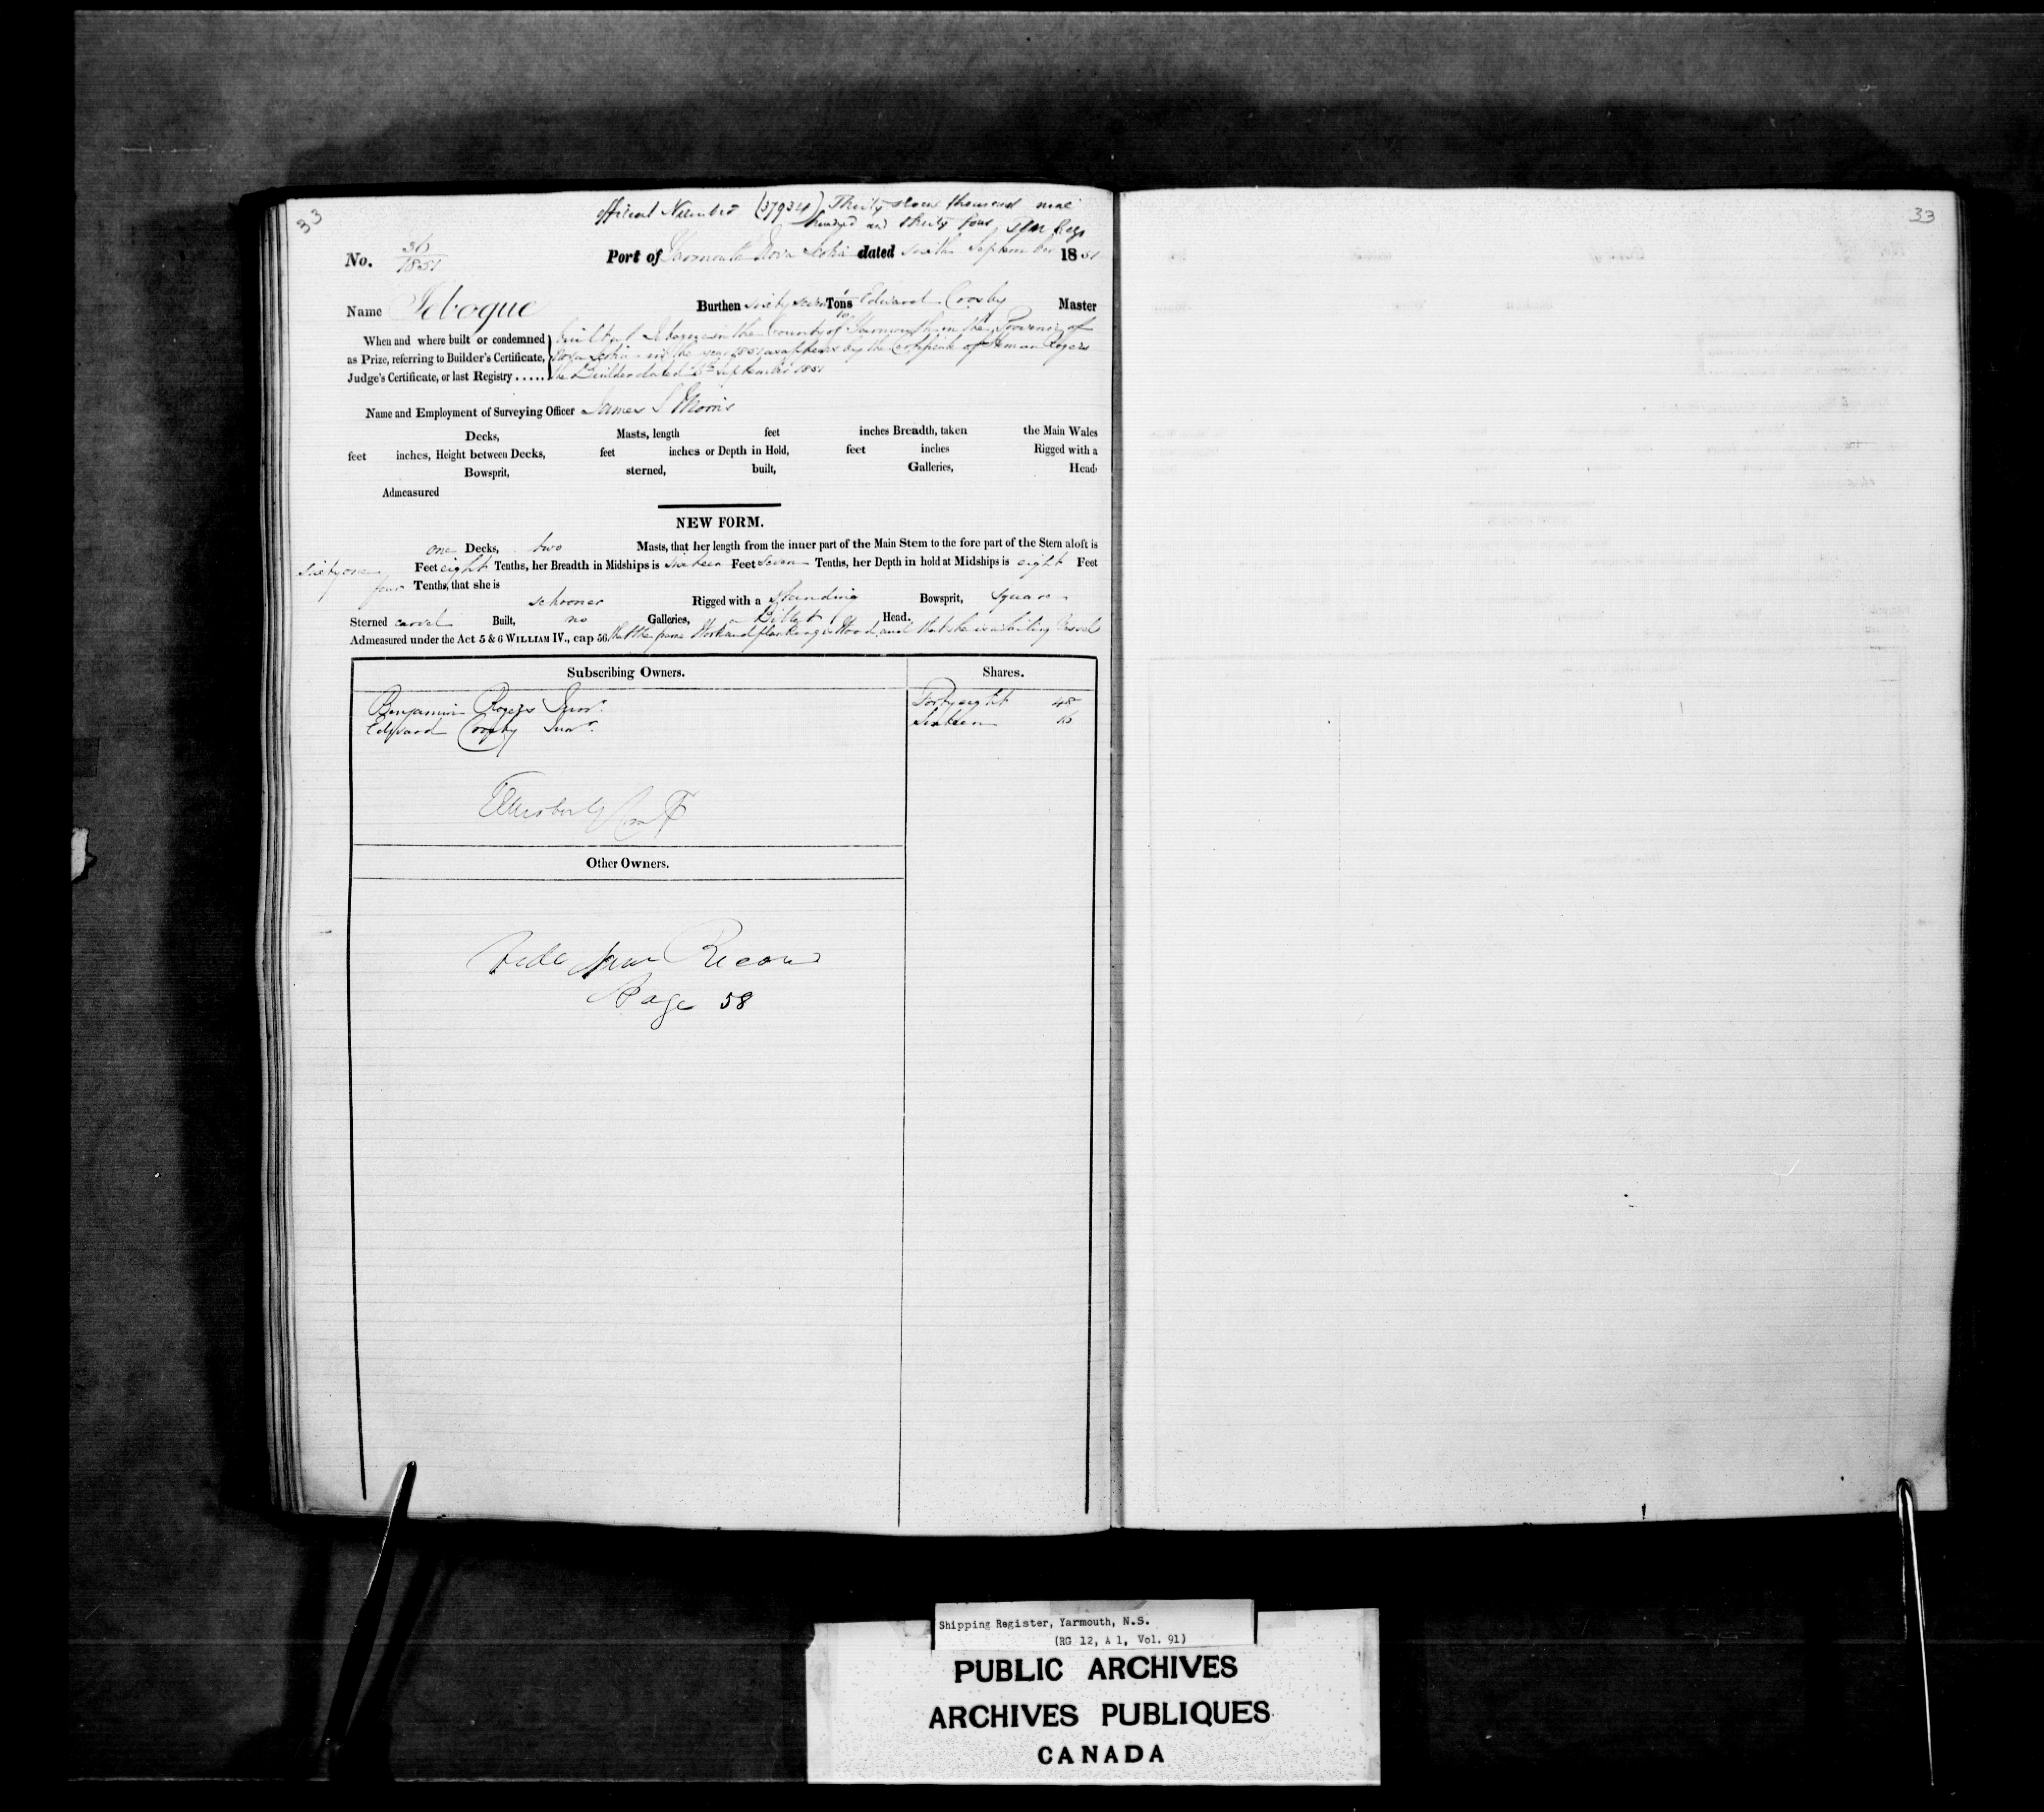 33
official Number (37934) Thirty seven thousand nine
hundred and thirty four
No. 36/1851 Port of Yarmouth Nova Scotia dated sixth September 1851
Name Jebogue Burthen sixty seven Tons Edward Crosby Master
When and where built or condemned built at Jebogue in the County of Yarmouth in the Province of
as Prize, referring to Builder's Certificate, Nova Scotia in the year 1851 as appears by the Certificate of Rogers
Judge's Certificate, or last Registry ..... the Builder dated September 1851
Name and Employment of Surveying Officer James S Morris
Decks, Masts, length feet inches Breadth, taken the Main Wales
feet inches, Height between Decks, feet inches or Depth in Hold, feet inches Rigged with a
Bowsprit, sterned, built, Galleries, Head,
Admeasured
NEW FORM.
one Decks, two Masts, that her length from the inner part of the Main Stem to the fore part of the Stern aloft is
sixty one Feet eight Tenths, her Breadth in Midships is sixteen Feet seven Tenths, her Depth in hold at Midships is eight Feet
four Tenths, that she is
schooner Rigged with a standing Bowsprit, square
Sterned carvel Built, no Galleries, a Billet Head.
Admeasured under the Act 5 & 6 WILLIAM IV., cap 56. that the frame Work and planking is Wood, and that she is a sailing Vessel
Subscribing Owners. Shares.
Benjamin Rogers Junr. Forty eight 48
Edward Crosby Junr. Sixteen 16
Other Owners.
Vide New Record
Page 58
33
Shipping Register, Yarmouth, N.S.
(RG 12, A 1, Vol. 91)
PUBLIC ARCHIVES
ARCHIVES PUBLIQUES
CANADA